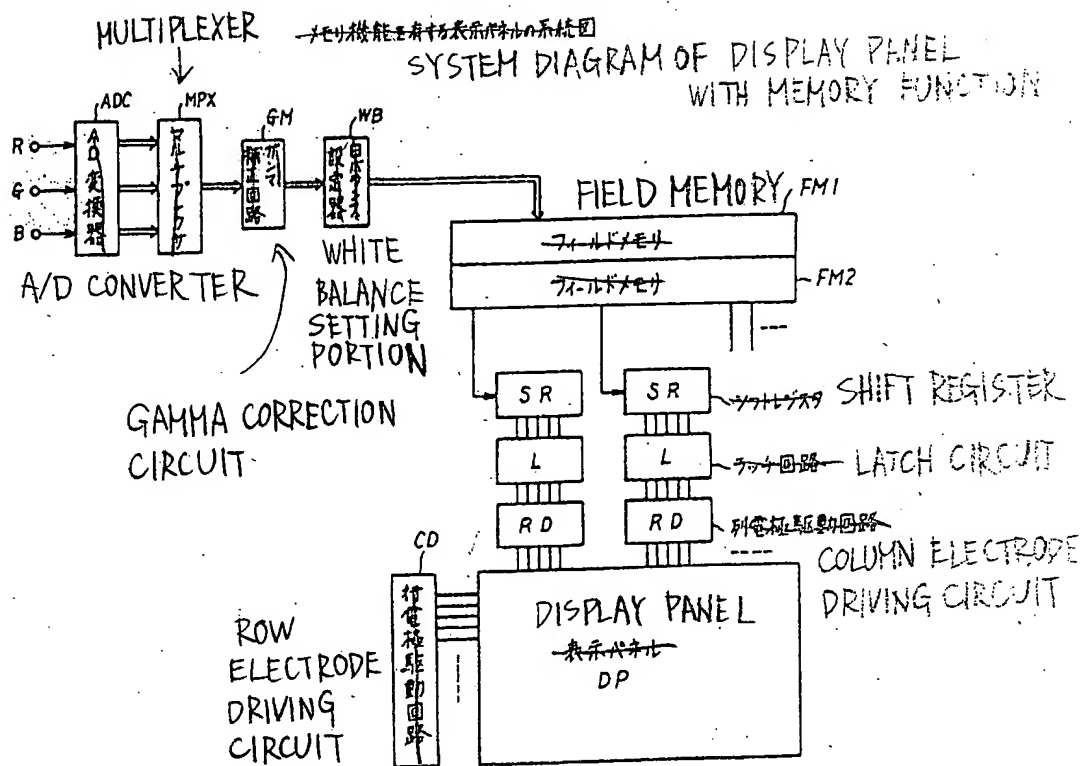 MULTIPLEXER
メモリ機能を有する表示パネルの系統図
SYSTEM DIAGRAM OF DISPLAY PANEL
WITH MEMORY FUNCTION
ADC
MPX
GM
WB
R
G
B
AD変換器
マルチプレクサ
ガンマ
補正回路
白バランス
設定部
A/D CONVERTER
WHITE
BALANCE
SETTING
PORTION
GAMMA CORRECTION
CIRCUIT
FIELD MEMORY
FM1
フィールドメモリ
フィールドメモリ
FM2
SR
SR
シフトレジスタ
SHIFT REGISTER
L
L
ラッチ回路
LATCH CIRCUIT
RD
RD
列電極駆動回路
COLUMN ELECTRODE
DRIVING CIRCUIT
CD
行電極駆動回路
ROW
ELECTRODE
DRIVING
CIRCUIT
DISPLAY PANEL
表示パネル
DP